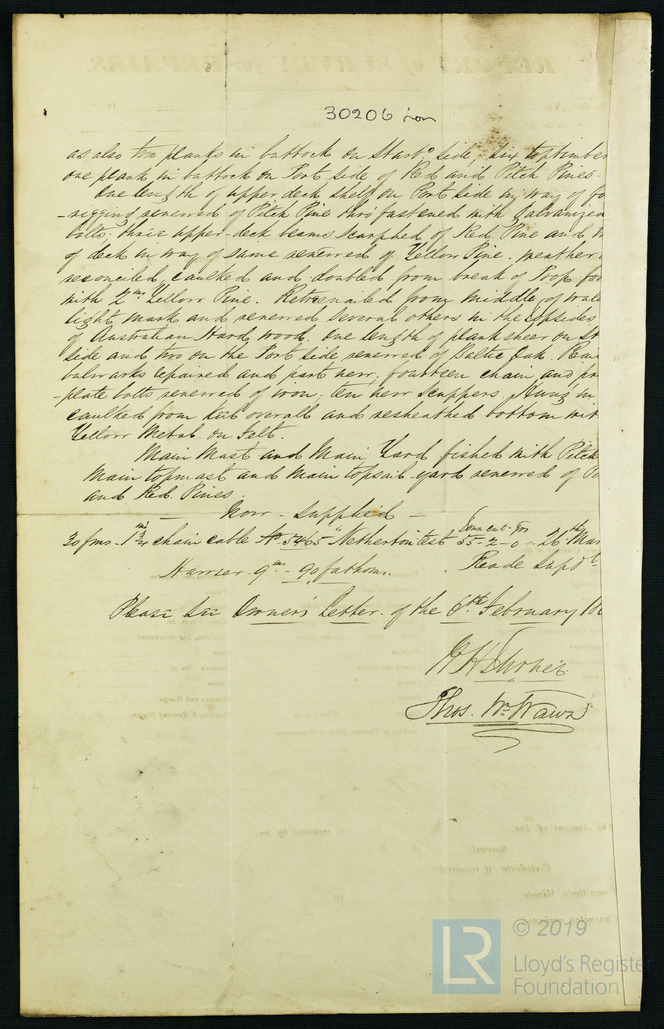 30206 iron
as also two planks in buttock on Starbd side, six toptimber
one plank in buttock on Port side of Red and Pitch Pines.
One length of upper deck shelf on Port side in way of fo
-rigging renewed of Pitch Pine thro' fastened with Galvanized
bolts. three upper-deck beams scarphed of Red Pine and
of deck in way of same renewed of Yellow Pine. weather
reconciled, caulked and doubled from break of Poop for
with 2 ins Yellow Pine. Retreenailed from middle of wale
light mark and renewed several others in the topsides
of Australian Hard wood. One length of plank sheer on St
side and two on the Port side renewed of Baltic Oak.
bulwarks repaired and part new; fourteen chain and pr
-plate bolts renewed of iron; ten new scuppers.
caulked from keel overall and resheathed bottom wit
Yellow Metal on Felt.
Main Mast and Main Yard fished with Pitch
Main topmast and Main topsail yard renewed of
and Red Pines.
— Now - Supplied —
30 fms - 1 3/4 ins chain cable No 5465 "Netherton test 55-2-0 - 26th Mar
Reade Supdt
Hawser. 9 ins - 90 fathoms.
Please see Owner's Letter. of the 6th February 18
Thos. Wm Wawn
© 2019
LR
Lloyd's Register
Foundation
REPORT of SURVEY for REPAIRS.
Special
Certificate if required
Committee's Minute
Character assigned